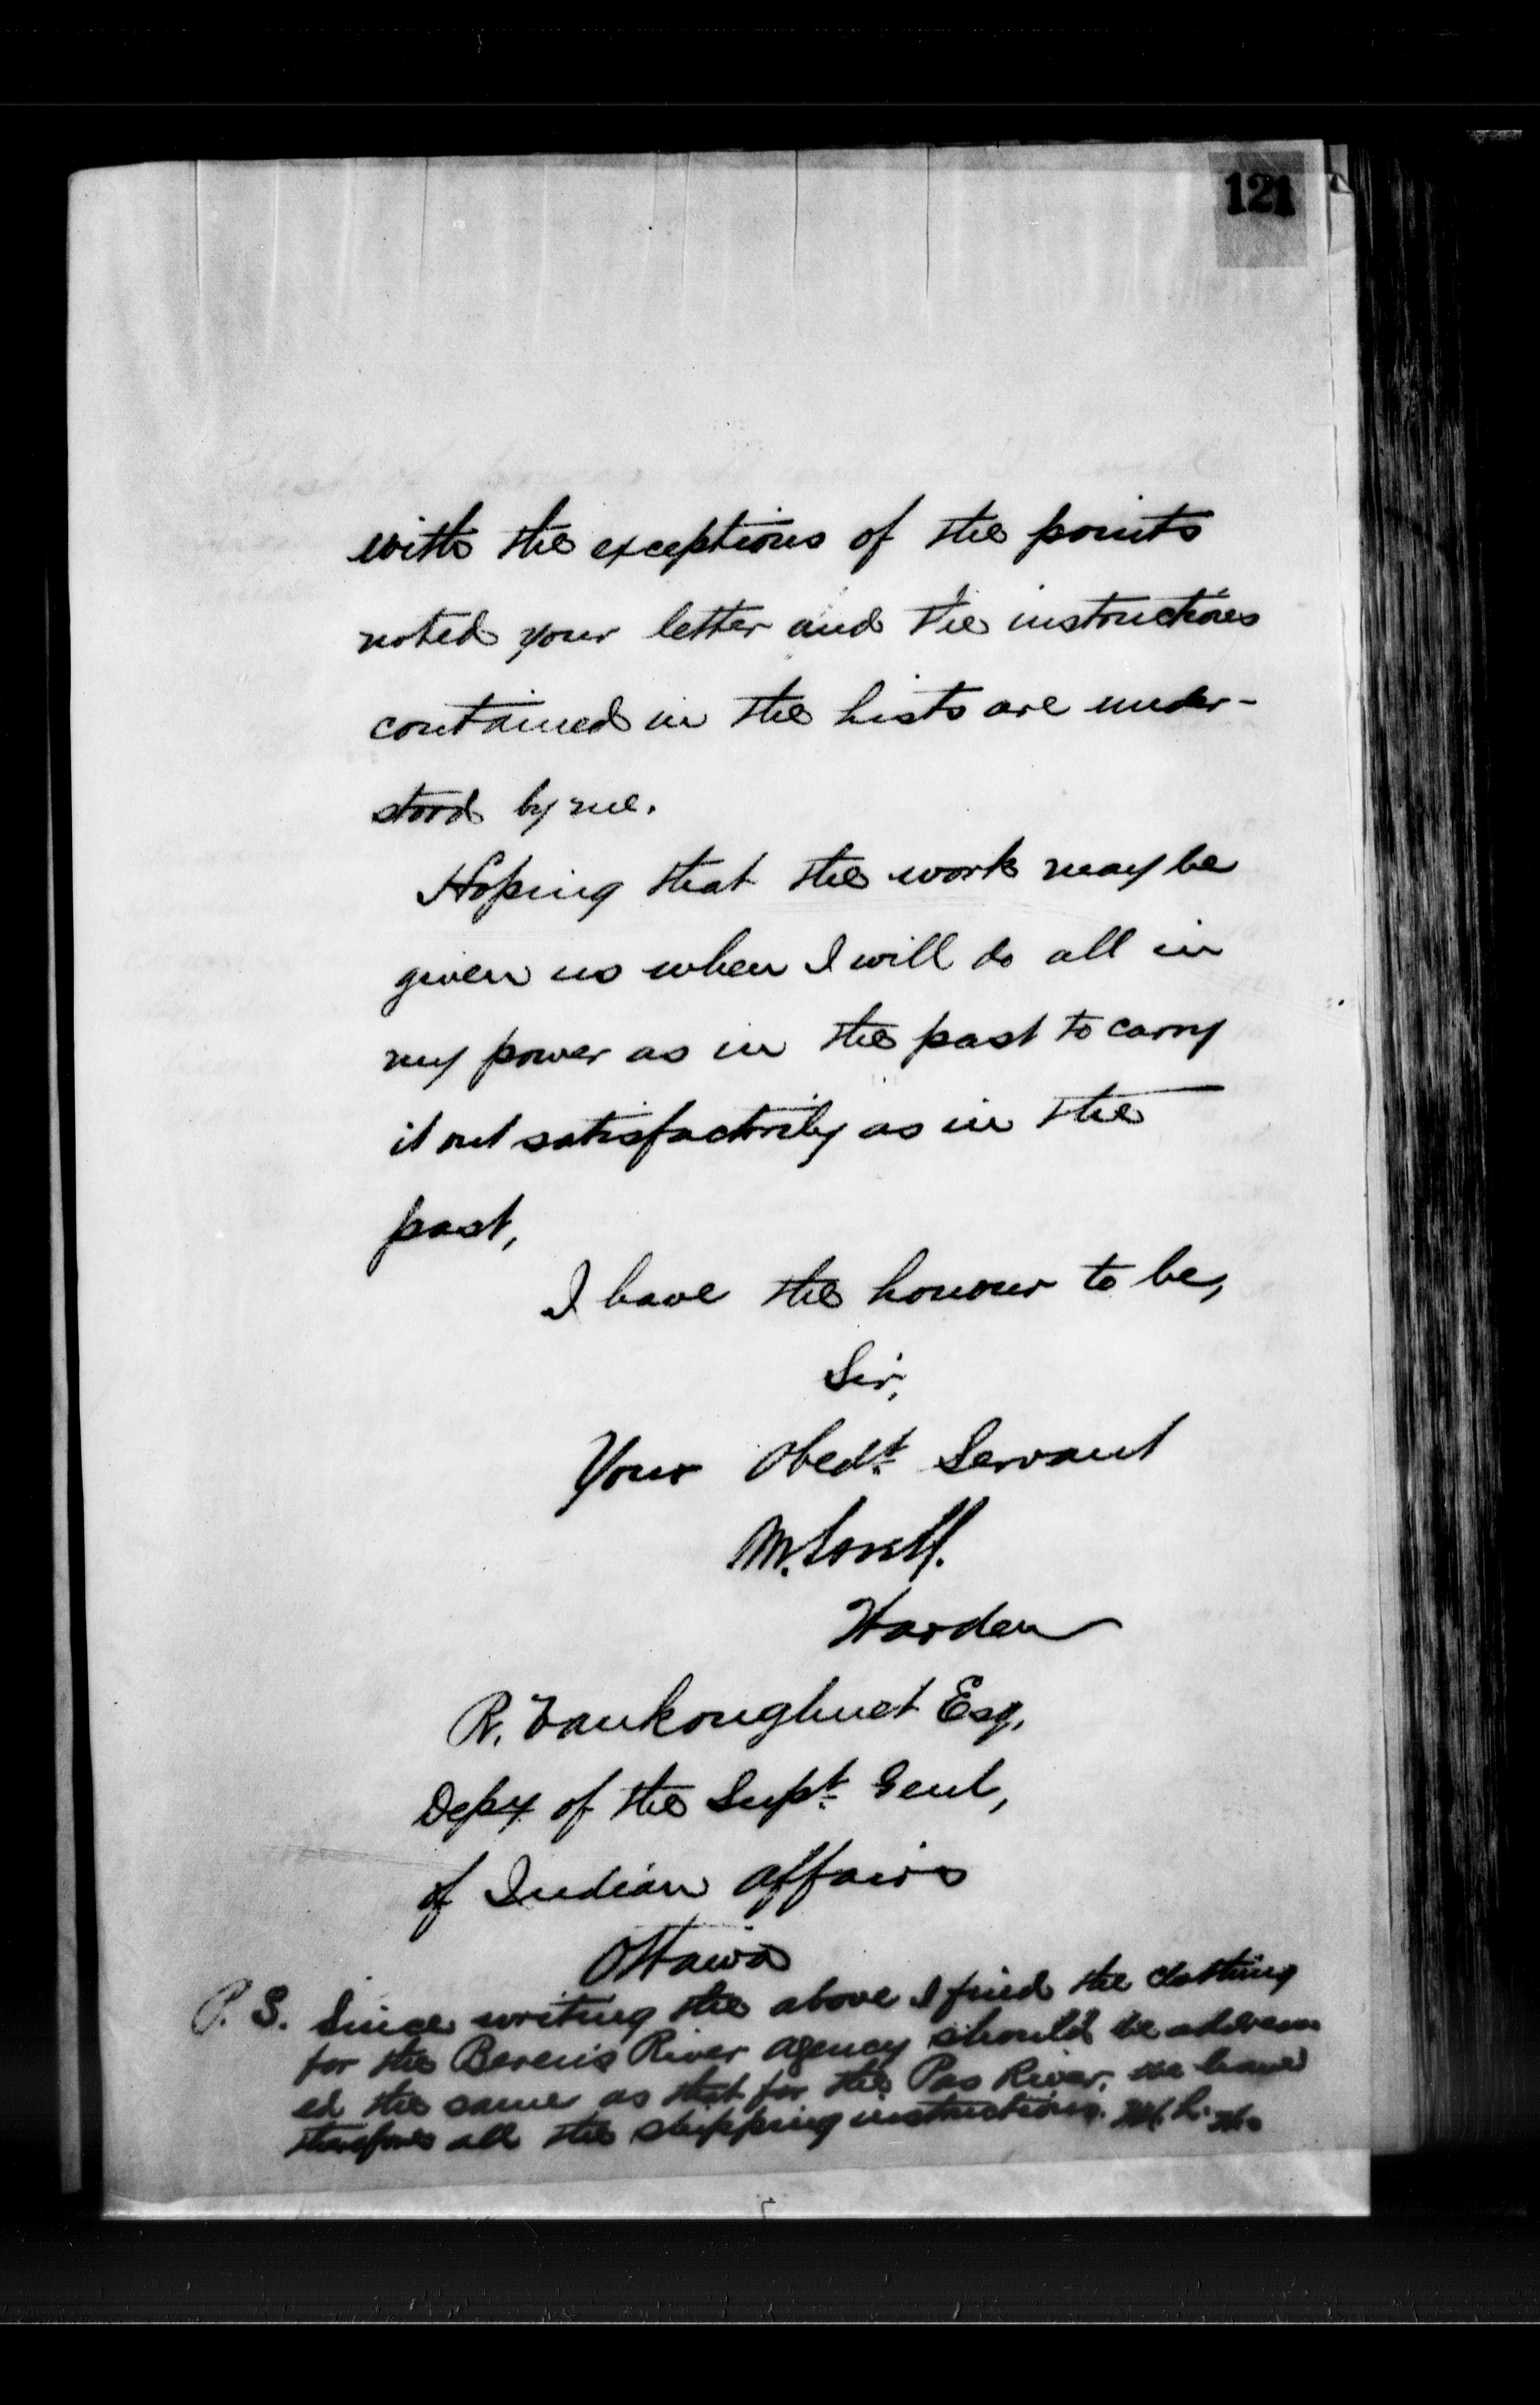 121
with the exceptions of the points
noted your letter and the instructions
contained in the lists are under-
stood by me.
Hoping that the work may be
given us when I will do all in
my power as in the past to carry
it out satisfactorily as in the
past,
I have the honour to be,
Sir,
Your Obedt. Servant
M. Lavell.
Warden
R. Vankoughnet Esq.
Depy of the Supt. Genl,
of Indian Affairs
Ottawa
P. S. Since writing the above I find the clothing
for the Beren's River Agency should be address
ed the same as that for the Pas River, we have
therefore all the shipping instructions. M. L. Wn